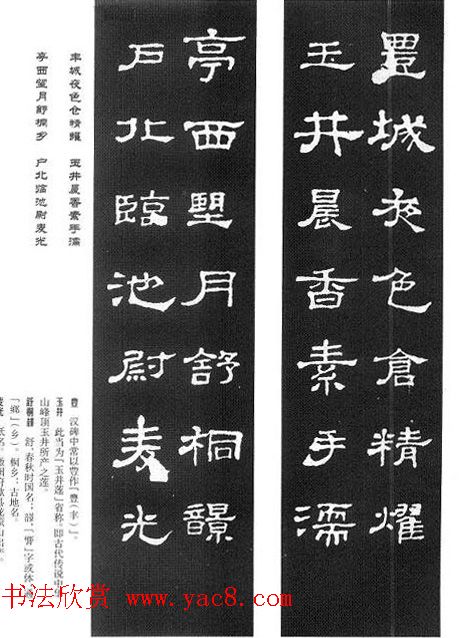 豊城夜色倉精燿
玉井晨香素手濡
亭西朢月舒桐
戶北臨池尉麦光
丰城夜色仓精耀 玉井晨香素手濡
亭西望月舒桐乡 户北临池尉麦光
豊 汉碑中常以豊作「豐(丰)」。
玉井 此当为「玉井莲」省称。即古代传说中
山峰顶玉井所产之莲。
舒桐 舒:春秋时国名;「響」字或体
「鄉」(乡)。桐乡:古地名。
纸名。
书法欣赏 www.yac8.com